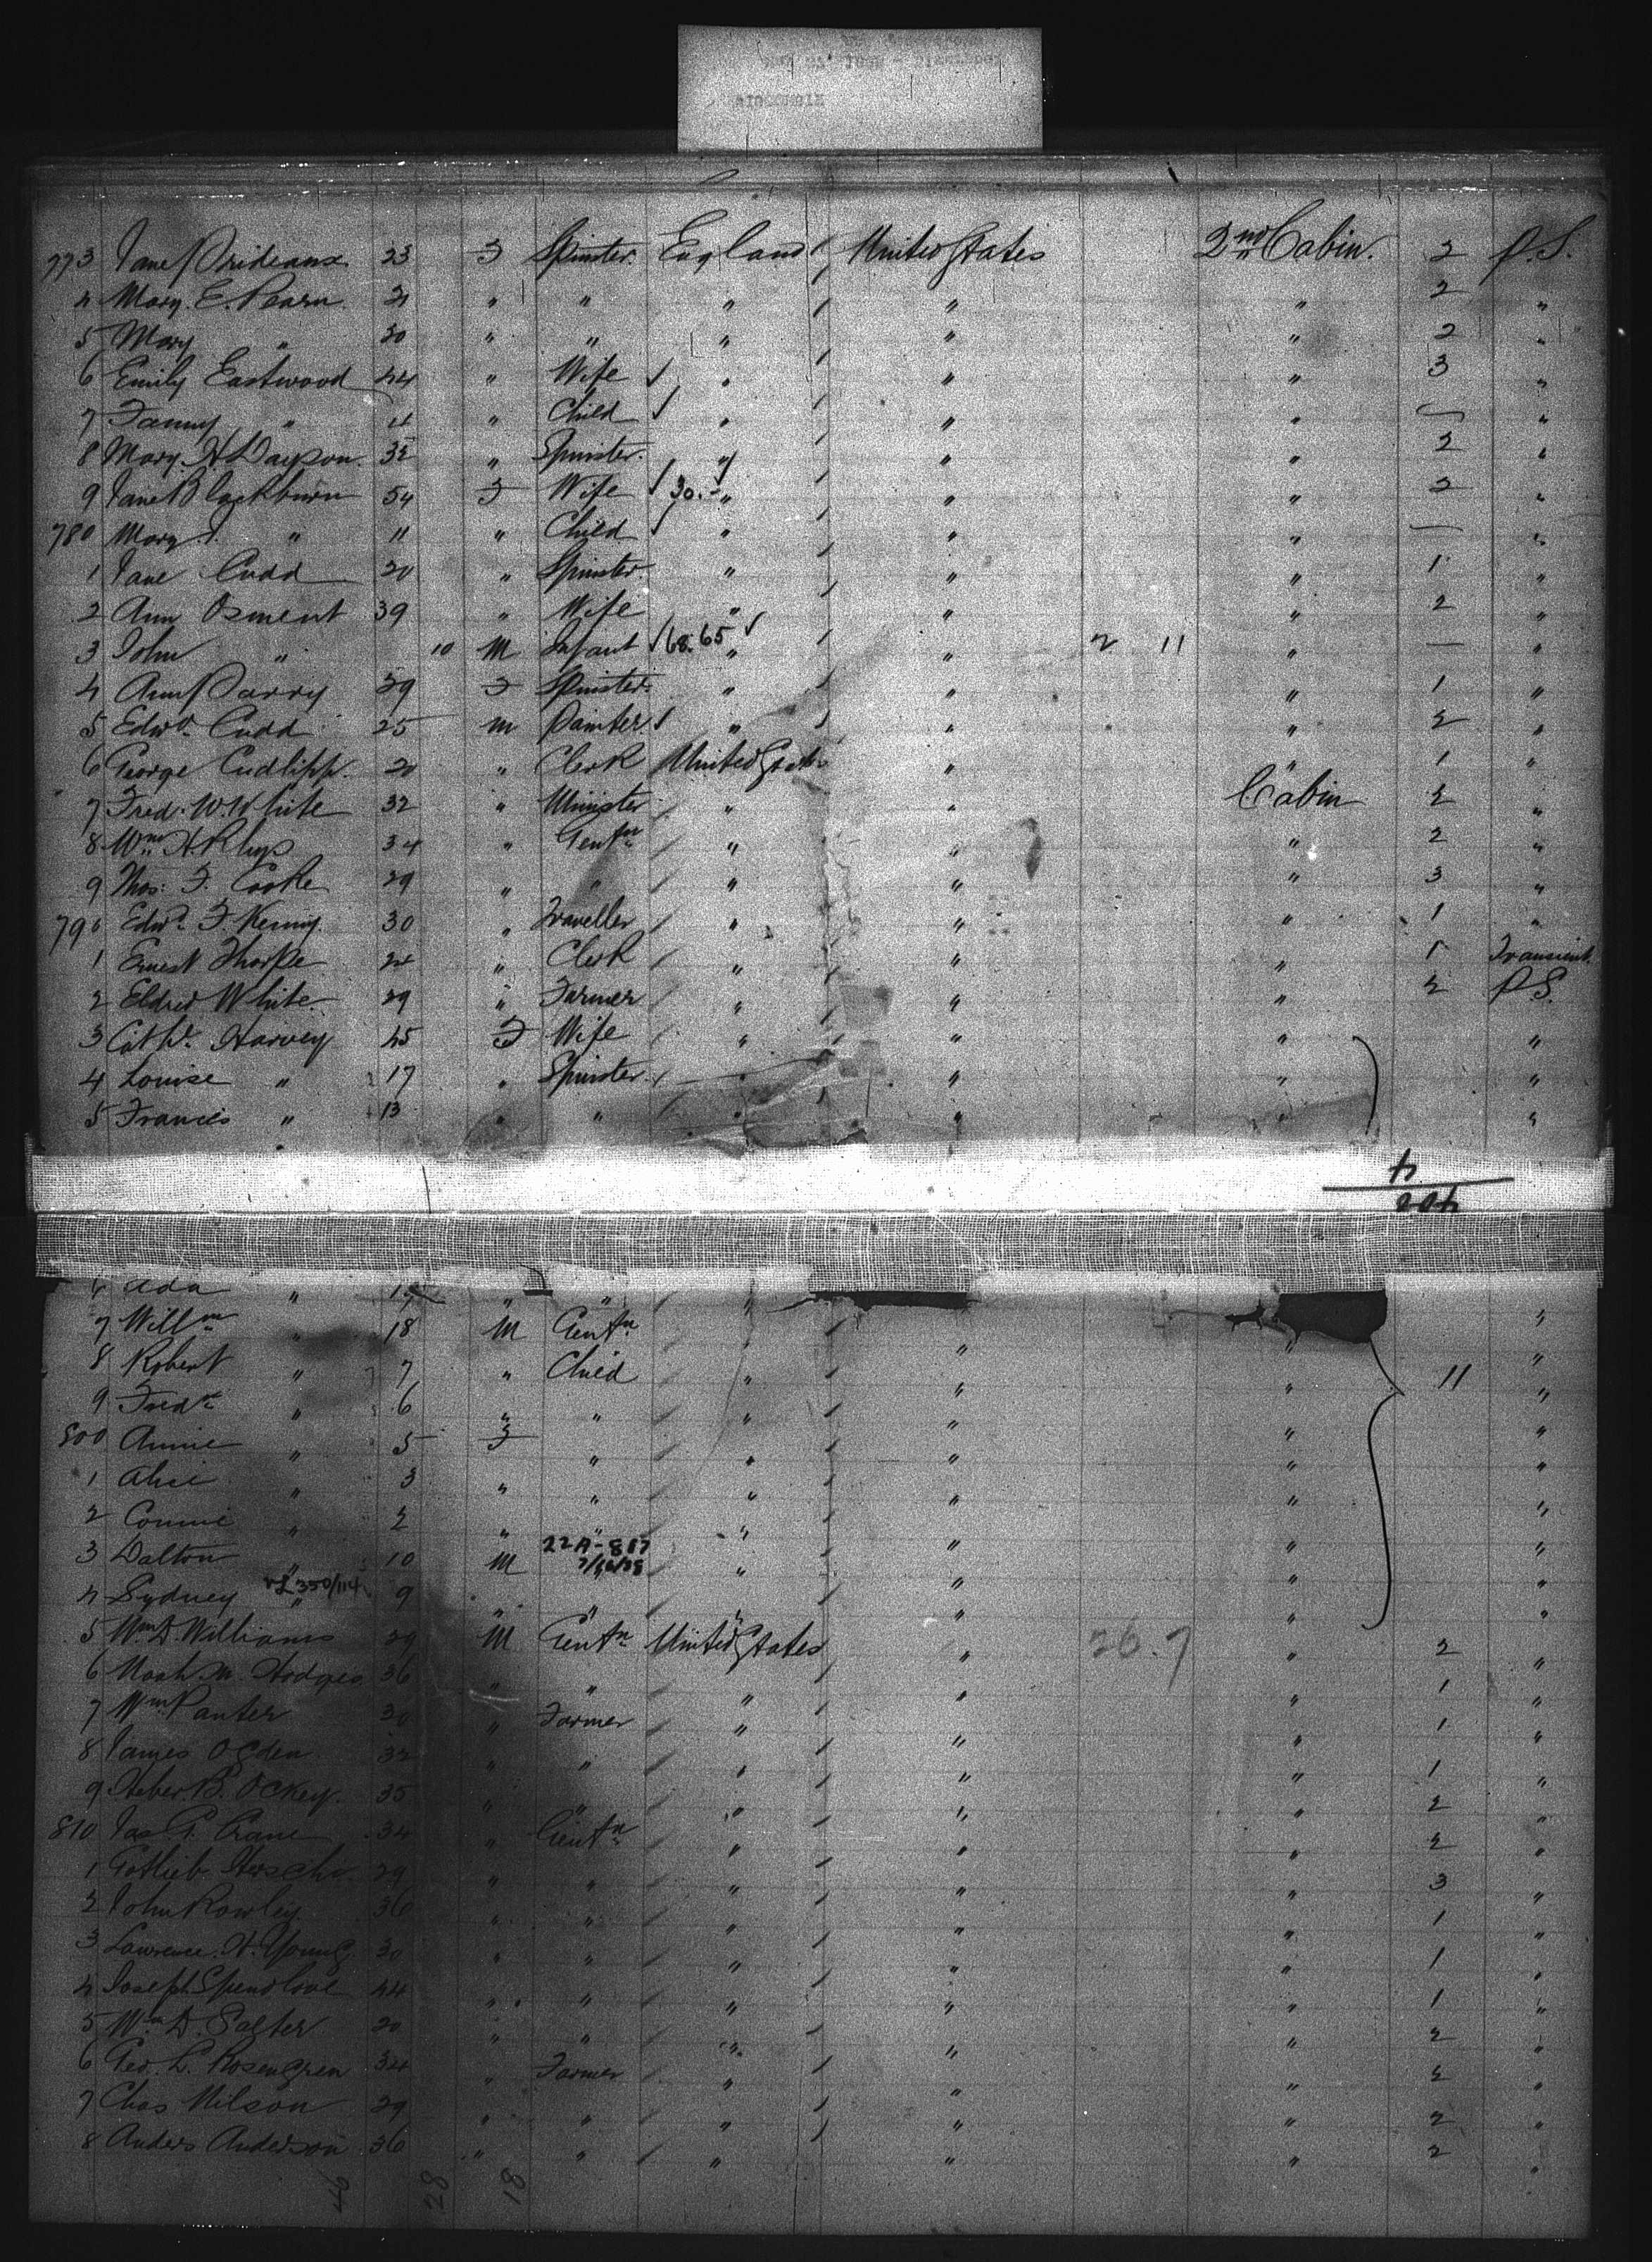 773 Jane Prideaux 23 F Spinster England United States 2nd Cabin. 2 P.S.
4 Mary. E. Pearn. 21 " " " " " 2 "
5 Mary " 20 " " " " " 2 "
6 Emily Eastwood 44 " Wife " " " 3 "
7 Fanny " 4 " Child " " " — "
8 Mary. H. Dayson. 32 " Spinster. " " " 2 "
9 Jane Blackburn 54 F Wife 30. " " " 2 "
780 Mary J. " 11 " Child " " " — "
1 Jane Cudd 20 " Spinster. " " " 1 "
2 Ann Osment 39 " Wife " " " 2 "
3 John " 10 M Infant 68.65 " " 2 11 " — "
4 Ann Parry 29 F Spinster. " " " 1 "
5 Edwd. Cudd 25 M Painter " " " 2 "
6 George Cudlipp. 20 " Clerk United States " " 1 "
7 Fred. W. White 32 " Minister " " Cabin 2 "
8 Wm. H. Rhys 34 " Gentn " " " 2 "
9 Thos: F. Cooke 29 " " " " " 3 "
790 Edwd. F. Kenny. 30 " Traveller " " " 1 "
1 Ernest Thorpe 24 " Clerk " " " 1 Transient.
2 Eldred White 29 " Farmer " " " 2 P.S.
3 Cathe. Harvey 45 F Wife " " " "
4 Louise " 17 " Spinster. " " " "
5 Francis " 13 " " " " " "
4
402
6 Ada " " " " "
7 Willm " 18 M Gentn. " " " "
8 Robert " 7 " Child " " " 11 "
9 Fredk " 6 " " " " " "
800 Annie " 5 F " " " " "
1 Alice " 3 " " " " " "
2 Connie " 2 " " " " " "
3 Dalton " 10 M 22A-817 " " " "
4 Sydney " 350/114 9 " " " " " "
5 Wm. D. Williams 29 M Gentn United States " 26.7 " 2 "
6 Noah. M. Hodges 36 " " " " " 1 "
7 Wm. Panter 30 " Farmer " " " 1 "
8 James Ogden 32 " " " " " 1 "
9 Heber. B. Ockey. 35 " " " " " 2 "
810 Jas. G. Crane 34 " Gentn " " " 2 "
1 Gotlieb. 29 " " " " " 3 "
2 John Rowley 36 " " " " " 1 "
3 Lawrence. H. Young. 30 " " " " " 1 "
4 Joseph Spendlove 44 " " " " " 1 "
5 Wm. D. Salter 20 " " " " " 2 "
6 Geo. L. Rosengren 34 " Farmer " " " 2 "
7 Chas Nilson 29 " " " " " 2 "
8 Anders Anderson 36 " " " " " 2 "
46 28 18